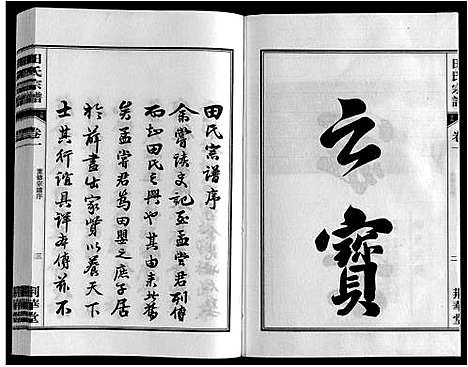 田氏宗譜
卷一
二
荆華堂
云寶
田氏宗譜序
余嘗讀史記至孟嘗君列傳
而知田氏之興也其由來者舊
矣孟嘗君爲田嬰之庶子居
於薛盡出家貲以養天下
士其行誼具詳本傳茲不
田氏宗譜
卷一
宗譜序
三
荆華堂